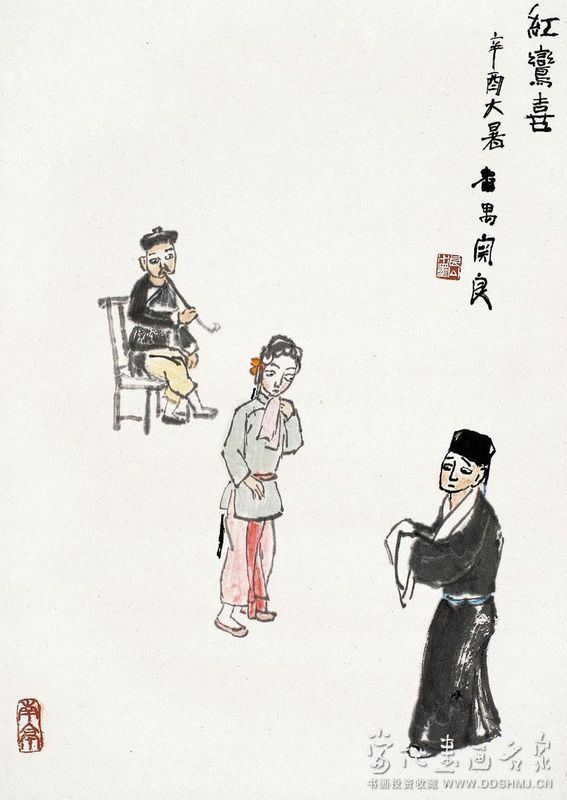 紅鸞喜
辛酉大暑 番禺関良
南亭
当代書画名家
书画投资收藏 WWW.DDSHMJ.CN